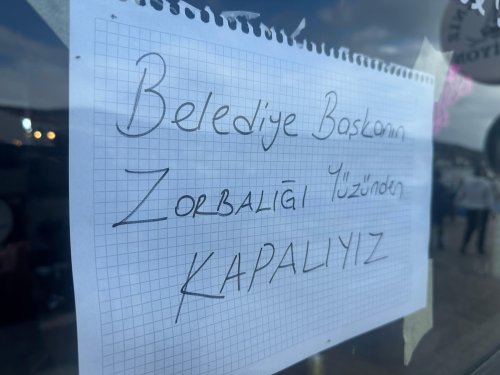 Belediye Başkanın
ZORBALIĞI Yüzünden
KAPALIYIZ